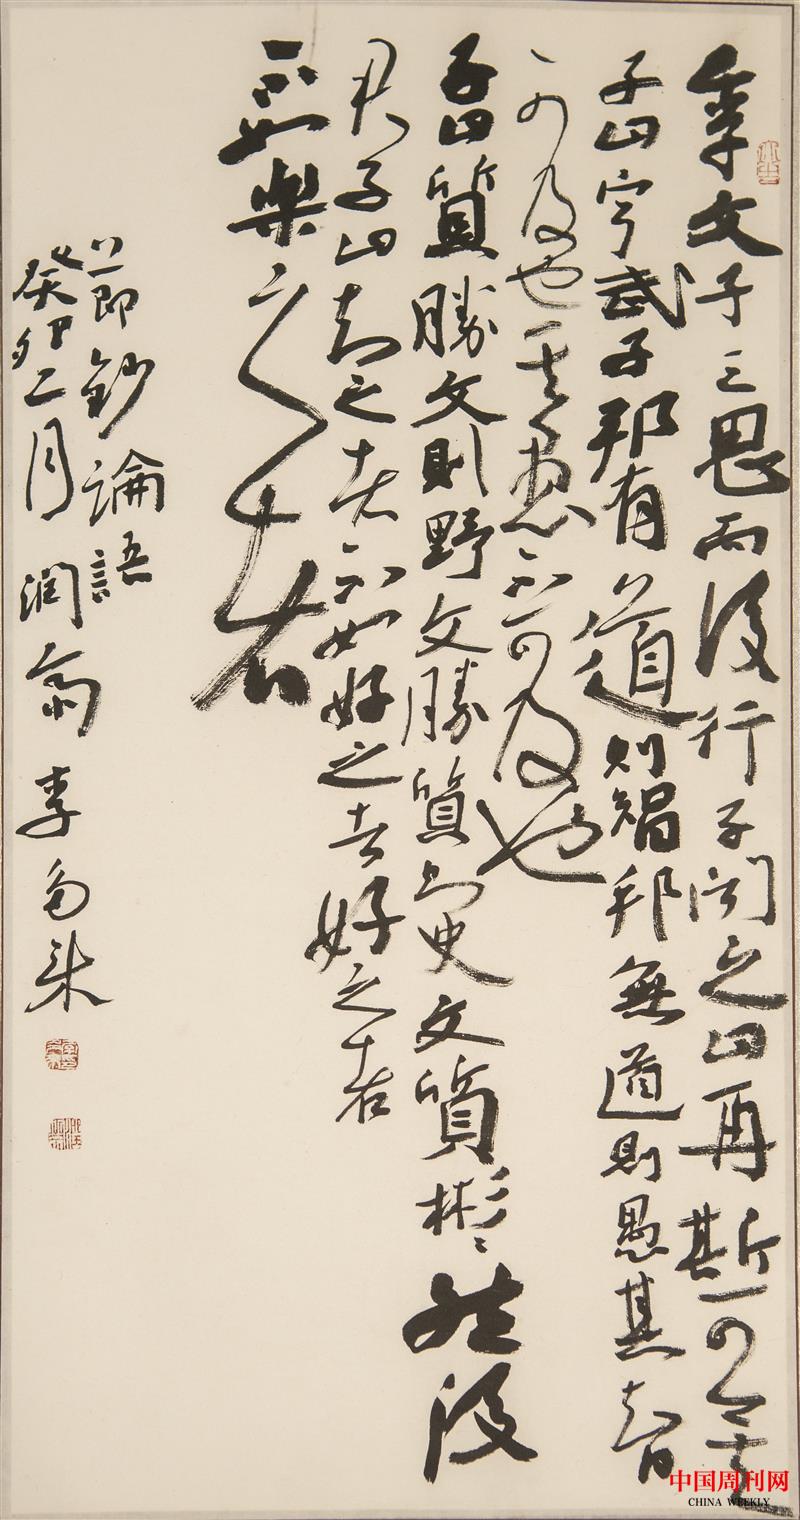 季文子三思而後行子聞之曰再斯可矣
子曰寧武子邦有道則智邦無道則愚其智
可及也其愚不可及也
子曰質勝文則野文勝質則史文質彬彬然後
君子曰知之者不如好之者好之者
不如樂之者
節鈔論語
癸卯二月潤齋李
中国周刊网
CHINA WEEKLY